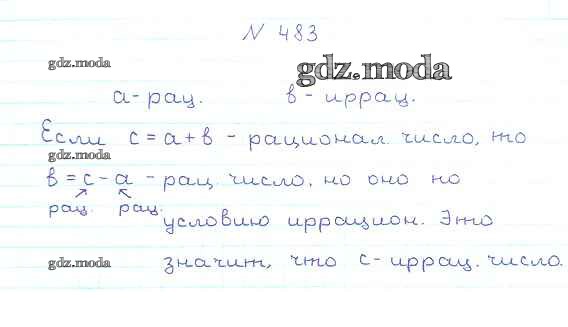 N 483
gdz.moda
gdz.moda
а - рац. в - иррац.
Если с = а + в - рационал. число, то
gdz.moda
в = с - а - рац. число, но оно по
рац. рац.
условию иррацион. Это
gdz.moda
значит, что с - иррац. число.